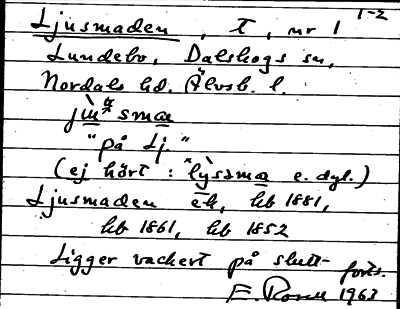 1-2
Ljusmaden, t, nr 1
Lundebo, Dalskogs sn,
Nordals hd. Älvsb. l.
"på Lj."
(ej hört : lyssma e. dyl.)
Ljusmaden ek, hb 1881,
hb 1861, hb 1852
Ligger vackert på slutt- forts.
E. 1963